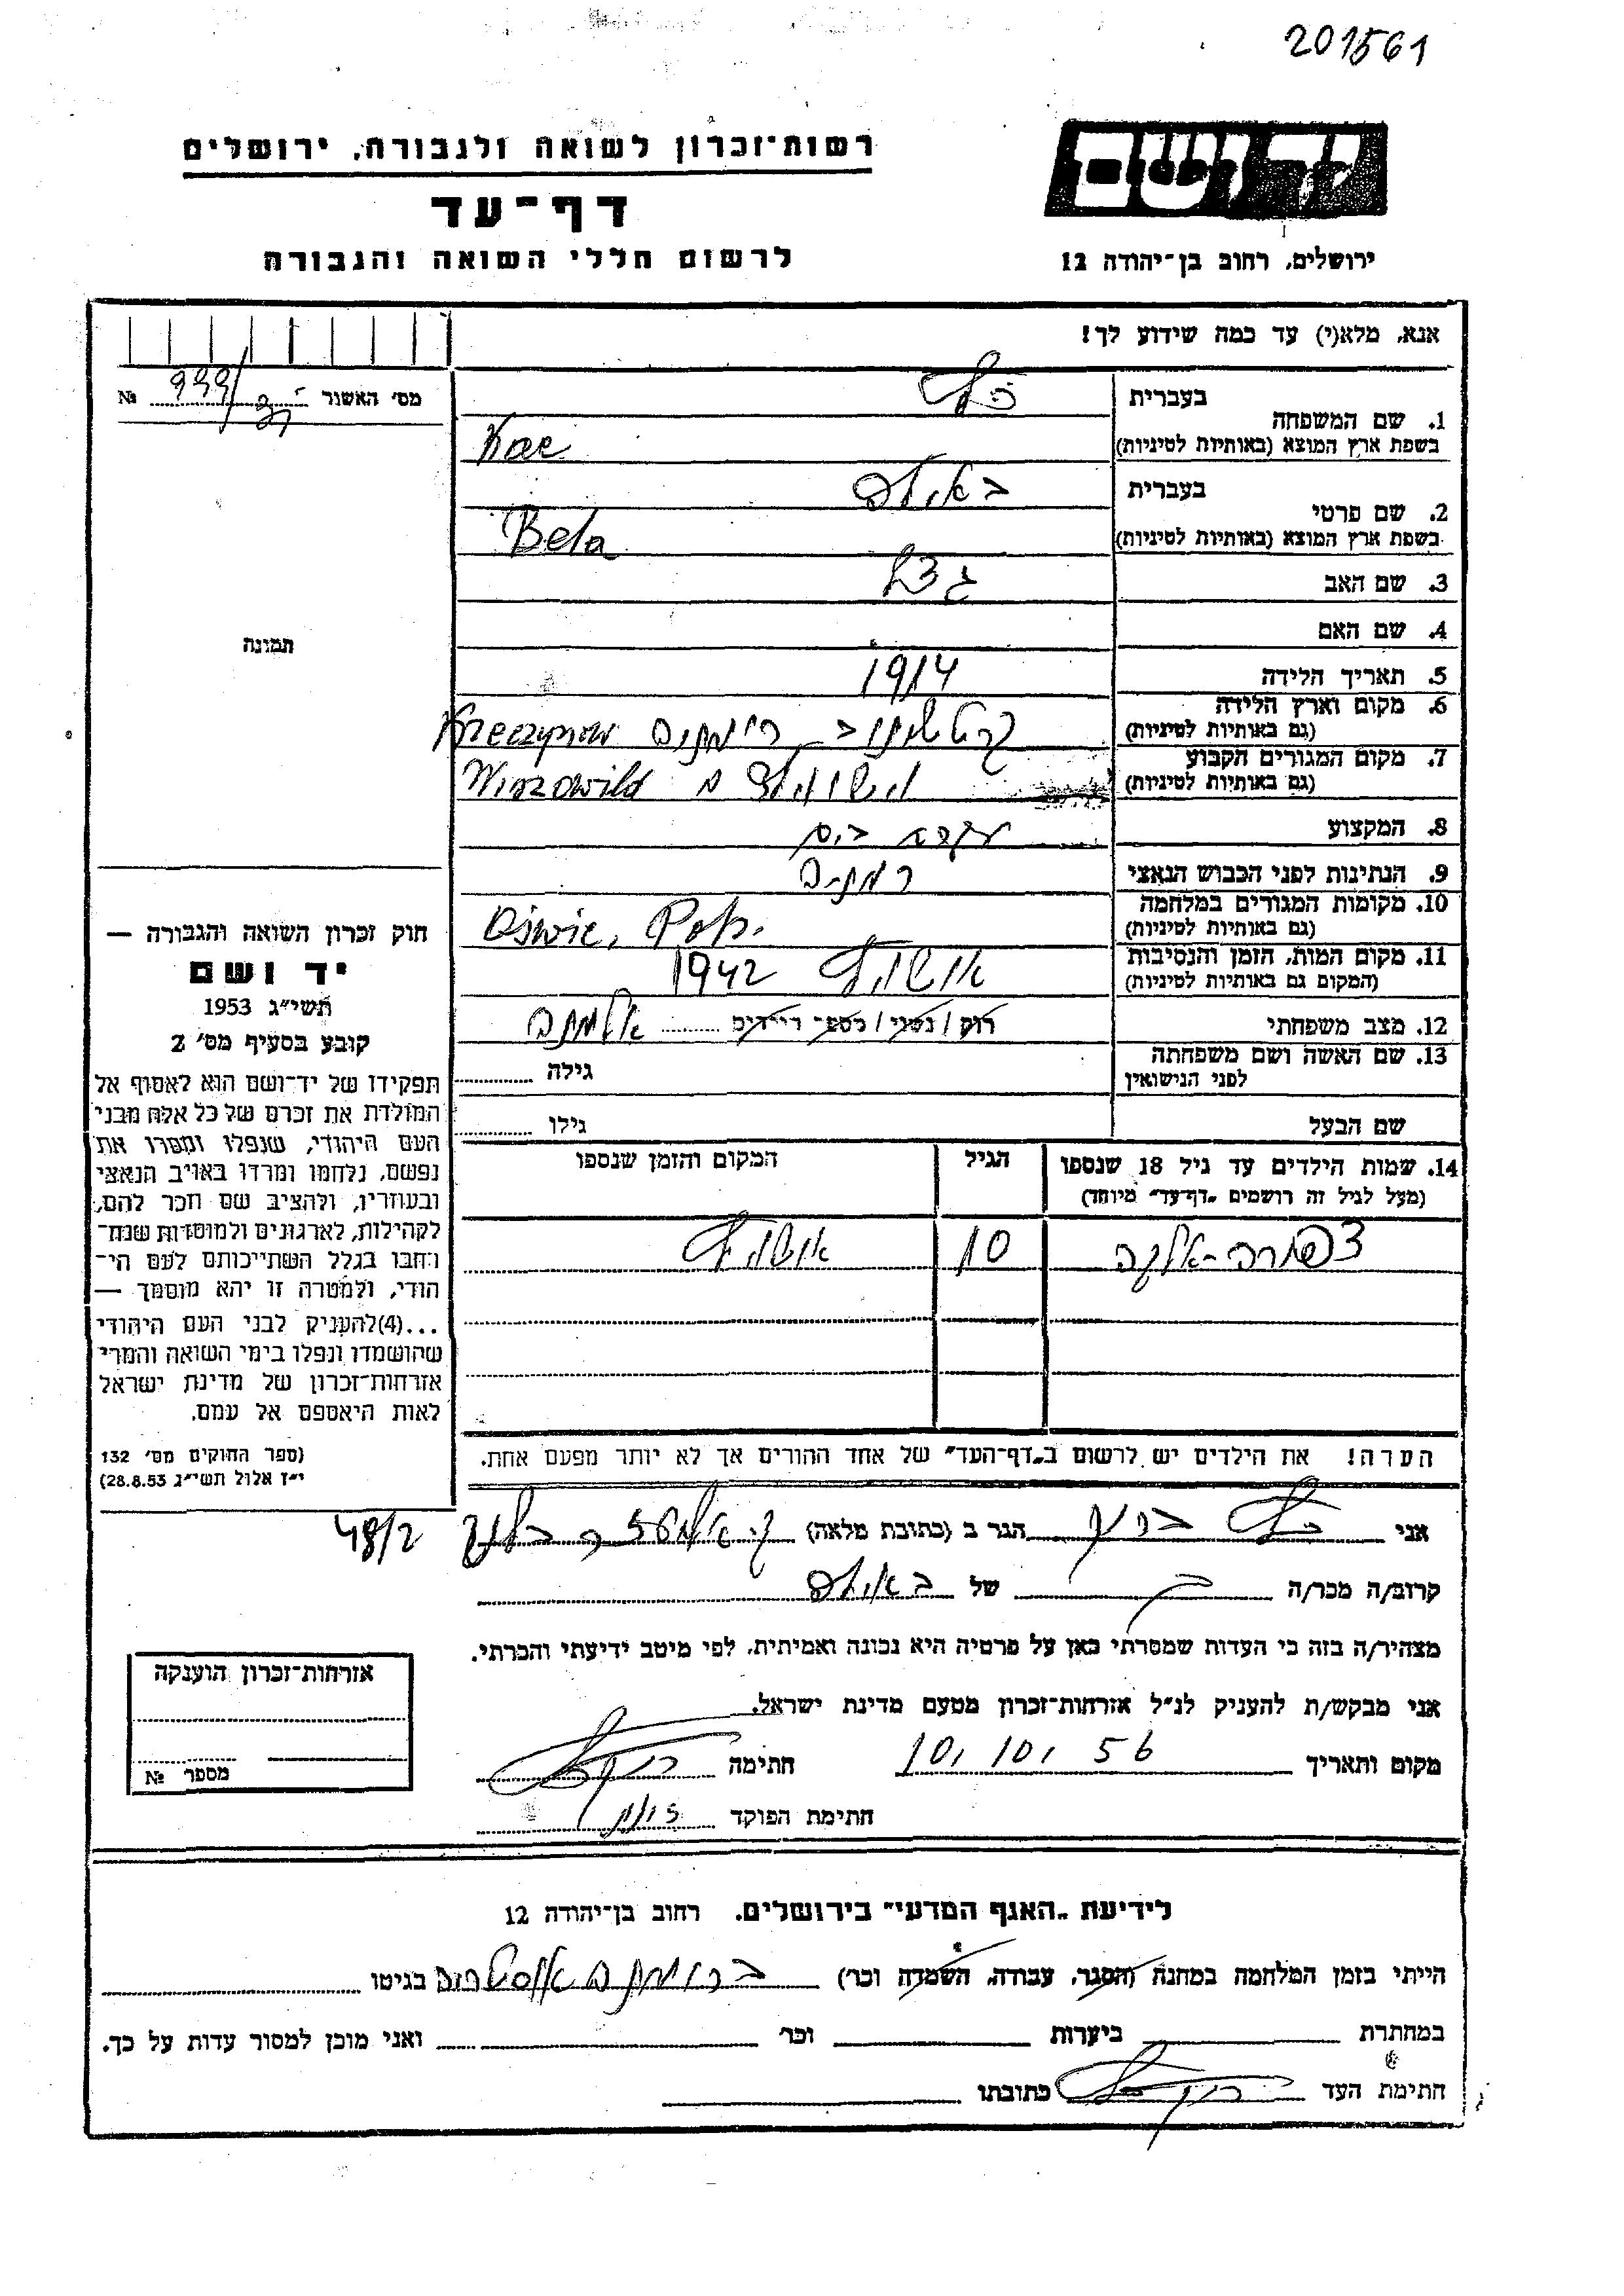 201561
יד ושם
רשות־זכרון לשואה ולגבורה, ירושלים
דף־עד
לרשום חללי השואה והגבורה
ירושלים, רחוב בן־יהודה 12
אנא, מלא(י) עד כמה שידוע לך!
מס׳ האשור № 999/
1. שם המשפחה
בעברית כץ
בשפת ארץ המוצא (באותיות לטיניות) Kac
2. שם פרטי
בעברית
בשפת ארץ המוצא (באותיות לטיניות) Bela
3. שם האב
4. שם האם
5. תאריך הלידה 1914
6. מקום וארץ הלידה
(גם באותיות לטיניות) Kreczynow
7. מקום המגורים הקבוע
(גם באותיות לטיניות) Wiszowild
8. המקצוע עקרת בית
9. הנתינות לפני הכבוש הנאצי
10. מקומות המגורים במלחמה
(גם באותיות לטיניות)
11. מקום המות, הזמן והנסיבות
(המקום גם באותיות לטיניות) אושויץ 1942
12. מצב משפחתי רוק / נשוי / מספר ילדים אלמנה
13. שם האשה ושם משפחתה
לפני הנישואין גילה
שם הבעל גילו
14. שמות הילדים עד גיל 18 שנספו
(מעל לגיל זה רושמים „דף־עד״ מיוחד)
הגיל
המקום והזמן שנספו
צפורה־ 10 אושויץ
הערה! את הילדים יש לרשום ב„דף־העד״ של אחד ההורים אך לא יותר מפעם אחת.
תמונה
חוק זכרון השואה והגבורה —
יד ושם
תשי״ג 1953
קובע בסעיף מס׳ 2
תפקידו של יד־ושם הוא לאסוף אל
המולדת את זכרם של כל אלה מבני
העם היהודי, שנפלו ומסרו את
נפשם, נלחמו ומרדו באויב הנאצי
ובעוזריו, ולהציב שם וזכר להם,
לקהילות, לארגונים ולמוסדות שנח־
רחבו בגלל השתייכותם לעם הי־
הודי, ולמטרה זו יהא מוסמך —
...(4)להעניק לבני העם היהודי
שהושמדו ונפלו בימי השואה והמרי
אזרחות־זכרון של מדינת ישראל
לאות היאספם אל עמם.
(ספר החוקים מס׳ 132
י״ז אלול תשי״ג 28.8.53)
אני כץ ברוך הגר ב (כתובת מלאה) 48/2
קרוב/ה מכר/ה בן של
מצהיר/ה בזה כי העדות שמסרתי כאן על פרטיה היא נכונה ואמיתית, לפי מיטב ידיעתי והכרתי.
אני מבקש/ת להעניק לנ״ל אזרחות־זכרון מטעם מדינת ישראל.
מקום ותאריך 10, 10, 56 חתימה
חתימת הפוקד
אזרחות־זכרון הוענקה
מספר №
לידיעת „האגף המדעי״ בירושלים, רחוב בן־יהודה 12
הייתי בזמן המלחמה במחנה (הסגר, עבודה, השמדה וכר׳) בגיטו
במחתרת ביערות וכר׳ ואני מוכן למסור עדות על כך.
חתימת העד כתובתו